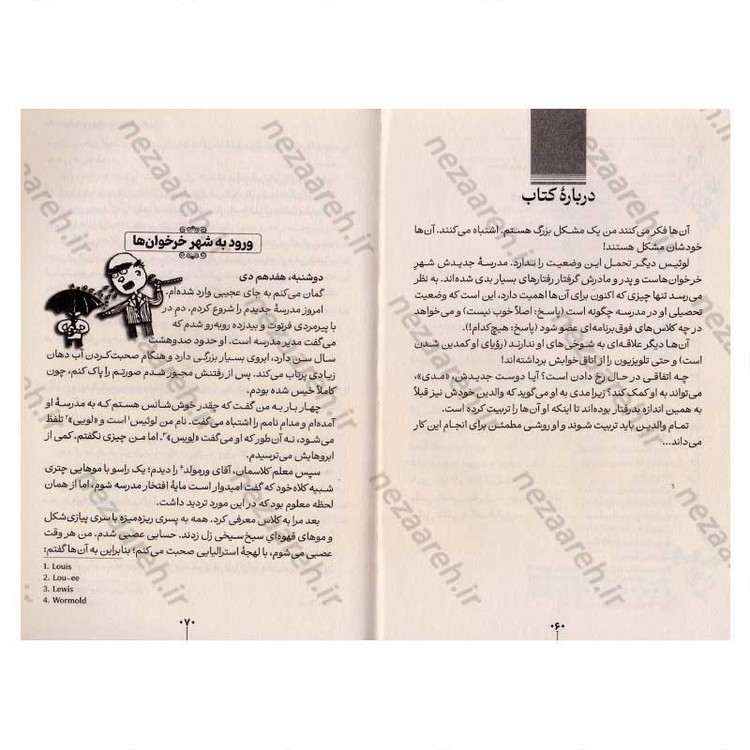 دربارهٔ کتاب
آن‌ها فکر می‌کنند من یک مشکل بزرگ هستم. اشتباه می‌کنند. آن‌ها
خودشان مشکل هستند!
لوئیس دیگر تحمل این وضعیت را ندارد. مدرسهٔ جدیدش شهرِ
خرخوان‌هاست و پدر و مادرش گرفتار رفتارهای بسیار بدی شده‌اند. به نظر
می‌رسد تنها چیزی که اکنون برای آن‌ها اهمیت دارد، این است که وضعیت
تحصیلی او در مدرسه چگونه است (پاسخ: اصلاً خوب نیست) و او می‌خواهد
در چه کلاس‌های فوق‌برنامه‌ای عضو شود (پاسخ: هیچ‌کدام!).
آن‌ها دیگر علاقه‌ای به شوخی‌های او ندارند (رؤیای او کمدین شدن
است) و حتی تلویزیون را از اتاق خوابش برداشته‌اند!
چه اتفاقی در حال رخ دادن است؟ آیا دوست جدیدش، «مدی»،
می‌تواند به او کمک کند؟ زیرا مدی به او می‌گوید که والدین خودش نیز قبلاً
به همین اندازه بدرفتار بوده‌اند تا اینکه او آن‌ها را تربیت کرده است.
تمام والدین باید تربیت شوند و او روشی مطمئن برای انجام این کار
می‌داند...
۰۶۰
ورود به شهر خرخوان‌ها
دوشنبه، هفدهم دی
گمان می‌کنم به جای عجیبی وارد شده‌ام.
امروز مدرسهٔ جدیدم را شروع کردم. دمِ در
با پیرمردی فرتوت و بیدزده روبه‌رو شدم که
می‌گفت مدیر مدرسه است. او حدود صدوهشت
سال سن دارد، ابروی بسیار بزرگی دارد و هنگام صحبت‌کردن آب دهان
زیادی پرتاب می‌کند. پس از رفتنش مجبور شدم صورتم را پاک کنم، چون
کاملاً خیس شده بودم.
چهار بار به من گفت که چقدر خوش‌شانس هستم که به مدرسهٔ او
آمده‌ام و مدام نامم را اشتباه می‌گفت. نام من لوئیس۱ است و «لویی»۲ تلفظ
می‌شود، نه آن‌طور که او می‌گفت «لویس»۳. اما من چیزی نگفتم، کمی از
ابروهایش می‌ترسیدم.
سپس معلم کلاسمان، آقای ورمولد۴ را دیدم؛ یک راسو با موهایی چتری
شبیه کلاه‌خود که گفت امیدوار است مایهٔ افتخار مدرسه شوم، اما از همان
لحظه معلوم بود که در این مورد تردید داشت.
بعد مرا به کلاس معرفی کرد. همه به پسری ریزه‌میزه با سری پیازی‌شکل
و موهای قهوه‌ایِ سیخ‌سیخی زل زدند. حسابی عصبی شدم. من هر وقت
عصبی می‌شوم، با لهجهٔ استرالیایی صحبت می‌کنم؛ بنابراین به آن‌ها گفتم:
1. Louis
2. Lou-ee
3. Lewis
4. Wormold
۰۷۰
nezaareh.ir